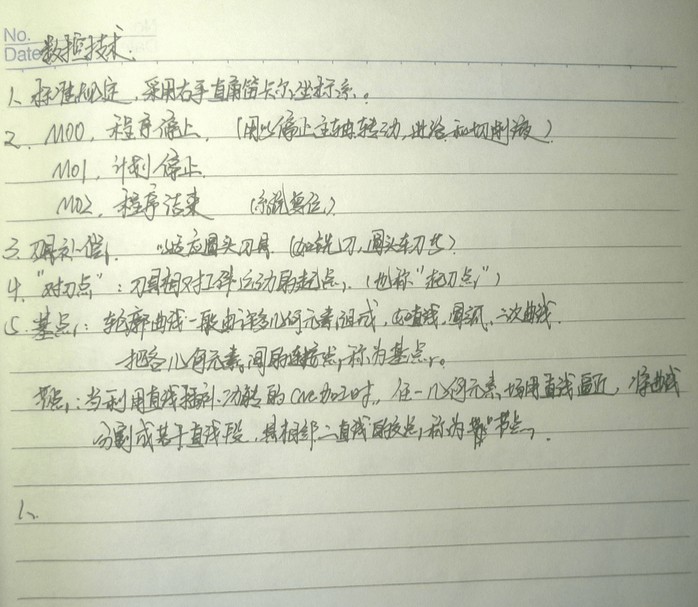 No.
Date
数控技术.
1、标准规定，采用右手直角笛卡尔坐标系。
2、M00，程序停止，（用以停止主轴转动，进给和切削液）
M01，计划停止
M02，程序结束 （系统复位）
3、刀具补偿， 以适应圆头刀具（如铣刀，圆头车刀等）
4、"对刀点"：刀具相对工件运动的起点，（也称"起刀点"）
5、基点：轮廓曲线一般由许多几何元素组成，如直线，圆弧，二次曲线.
把各几何元素间的连接点，称为基点。
节点：当利用直线插补功能的CNC加工时，任一几何元素均用直线逼近，将曲线
分割成若干直线段，其相邻二直线的交点，称为"节点"，
1、